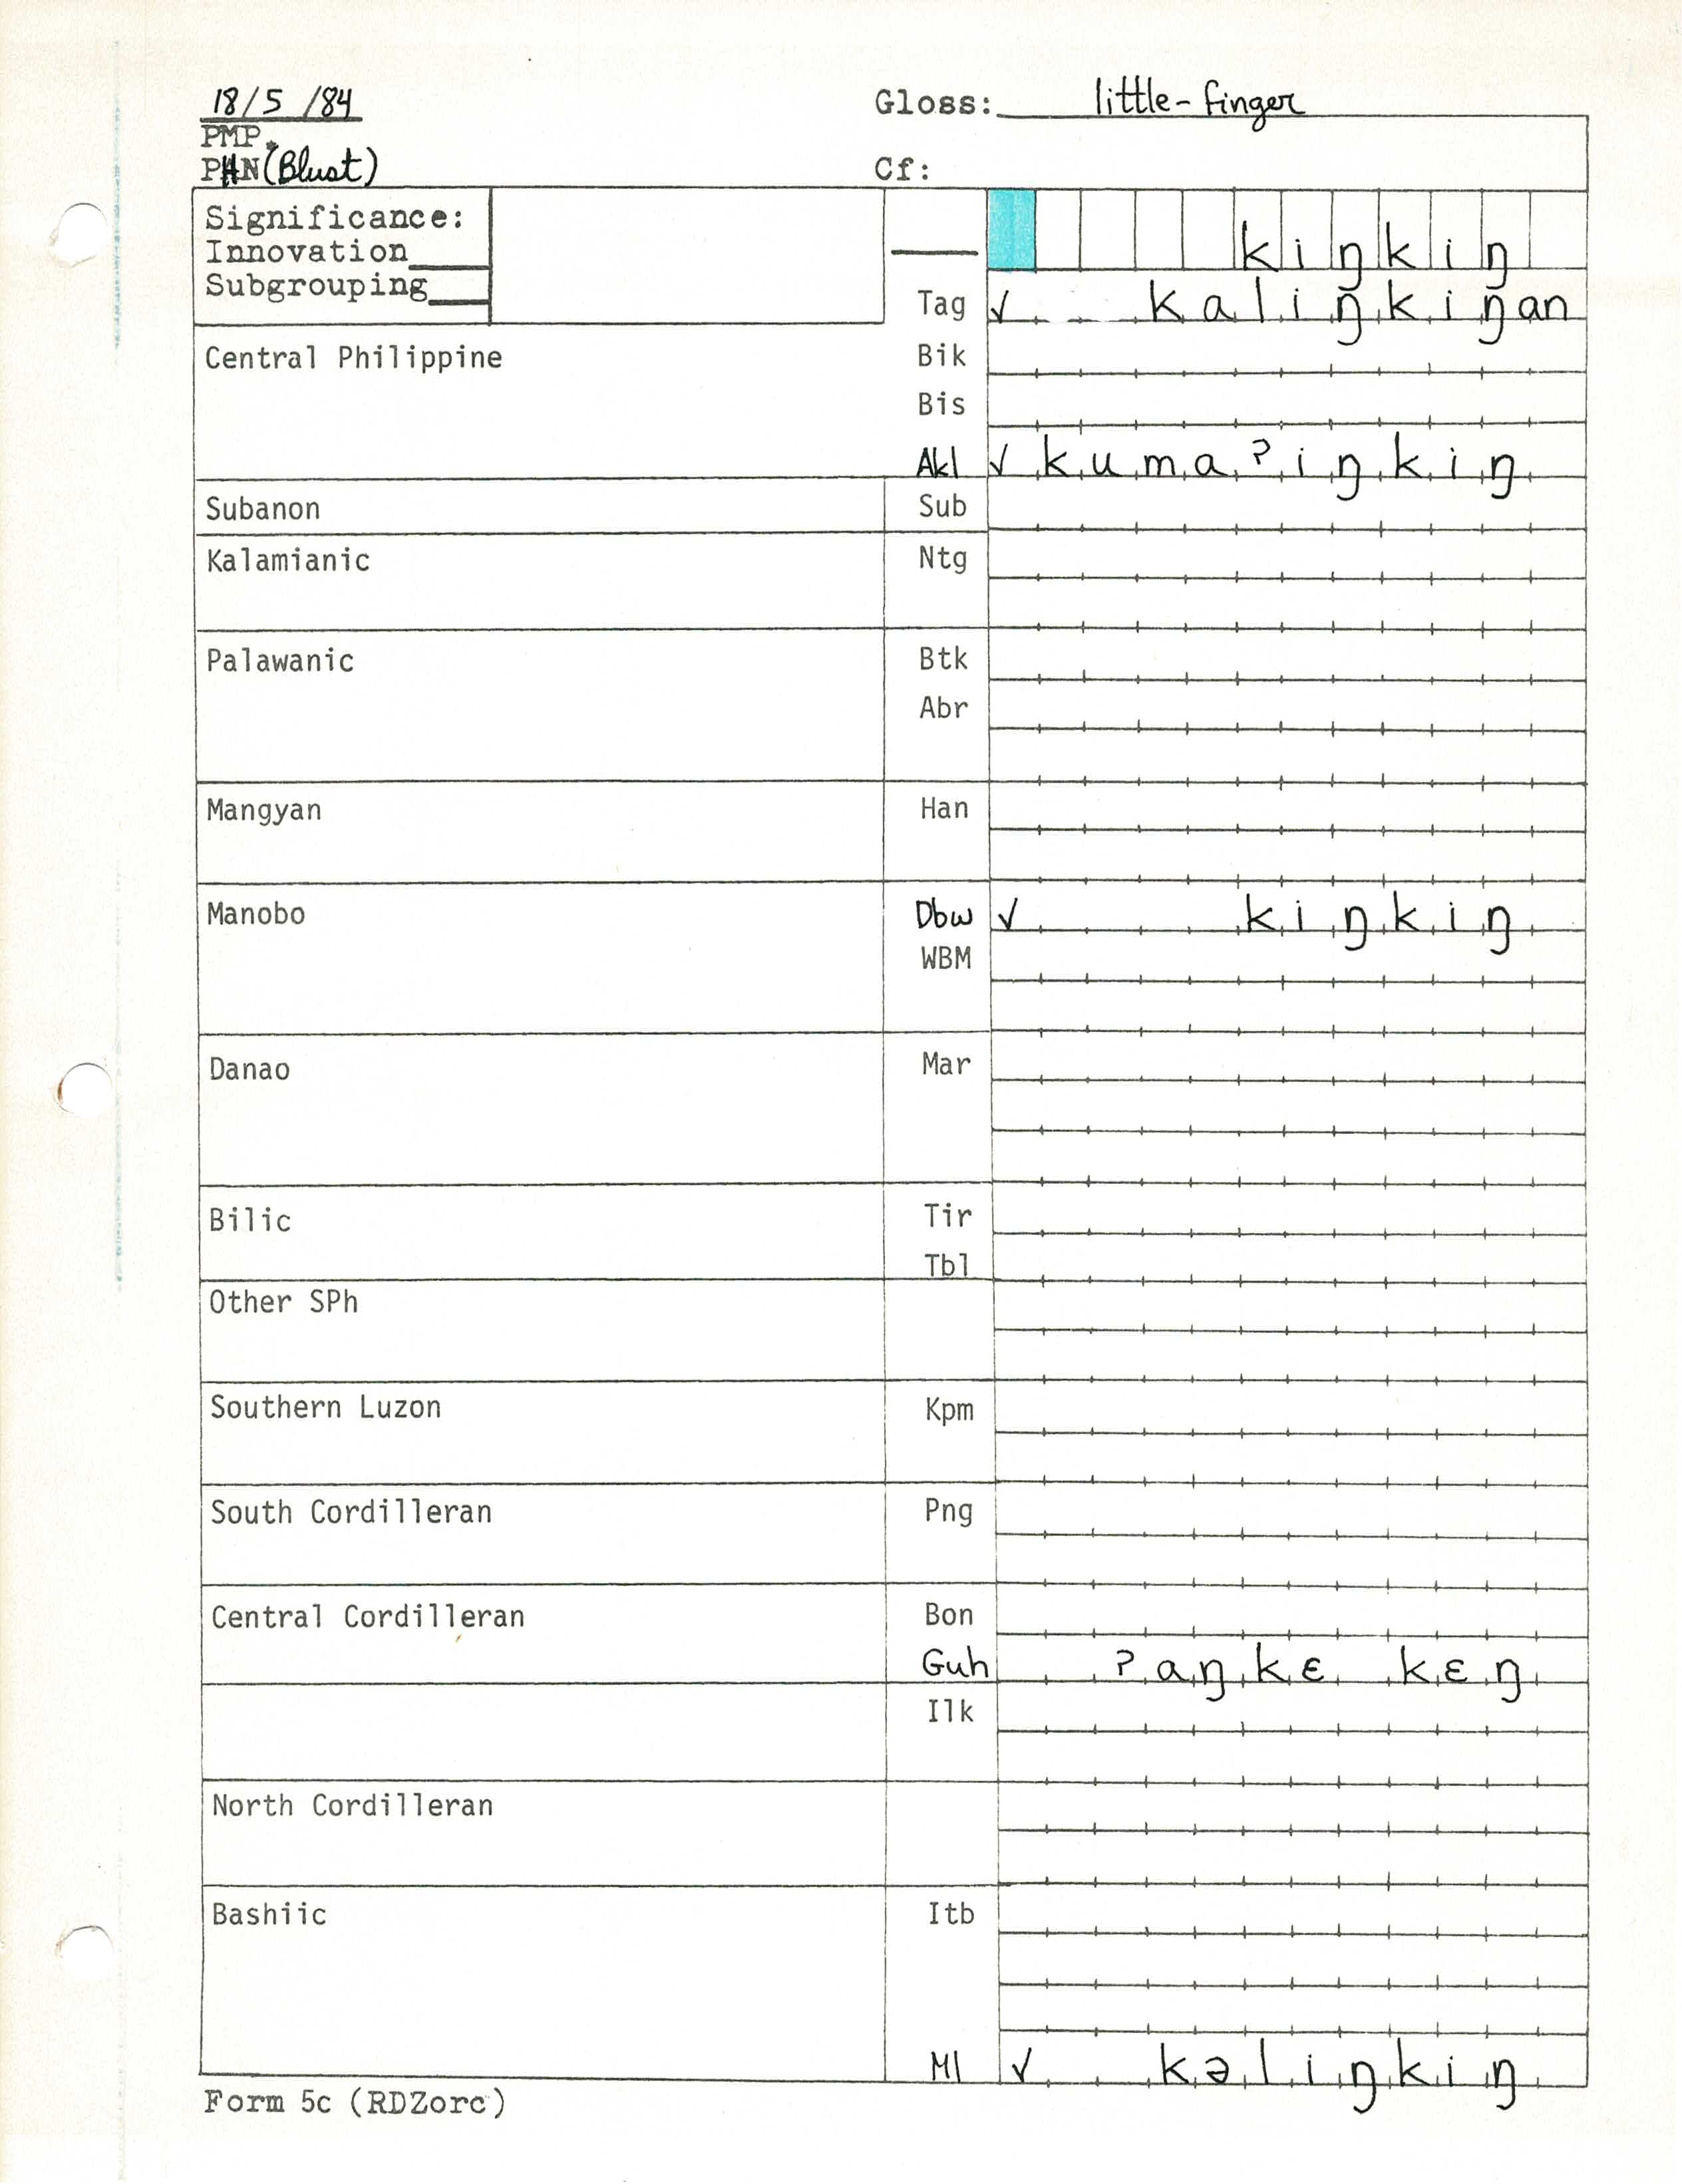 18/5/84 Gloss: little-finger
PMP.
PHN (Blust) Cf:
Significance:
Innovation
Subgrouping
kiŋkiŋ
Tag √ kaliŋkiŋan
Central Philippine Bik
Bis
Akl √ kumaʔiŋkiŋ
Subanon Sub
Kalamianic Ntg
Palawanic Btk
Abr
Mangyan Han
Manobo Dbw √ kiŋkiŋ
WBM
Danao Mar
Bilic Tir
Tbl
Other SPh
Southern Luzon Kpm
South Cordilleran Png
Central Cordilleran Bon
Guh ʔaŋkɛ kɛŋ
Ilk
North Cordilleran
Bashiic Itb
Ml √ kəliŋkiŋ
Form 5c (RDZorc)